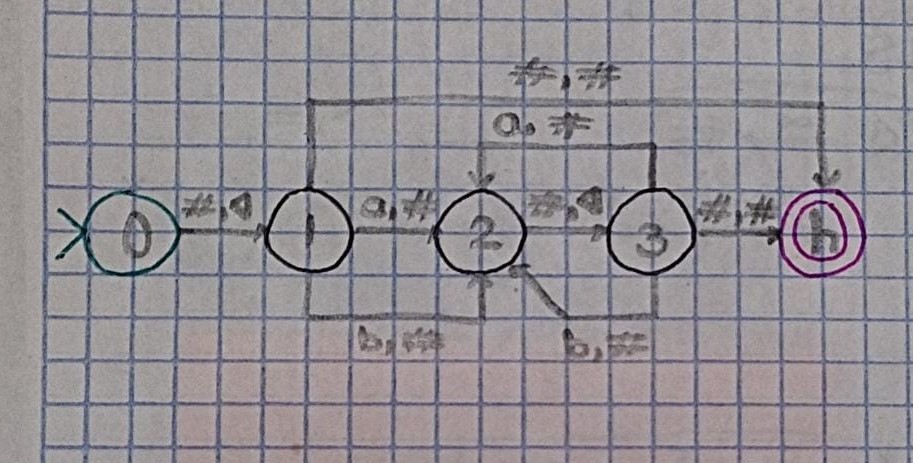 #, #
a, #
0 #,◄ 1 a,# 2 #,◄ 3 #,# h
b,## b,#